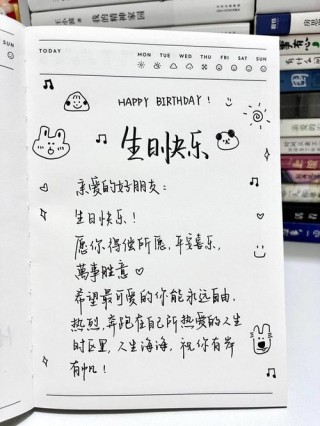 SUN
TODAY
MON TUE WED THU FRI SAT SUN
HAPPY BIRTHDAY!
生日快乐
亲爱的好朋友:
生日快乐!
愿你得偿所愿,平安喜乐,
萬事胜意
希望最可爱的你能永远自由,
热烈,奔跑在自己所热爱的人生
时区里,人生海海,祝你有岸
有帆!
我的精神家园